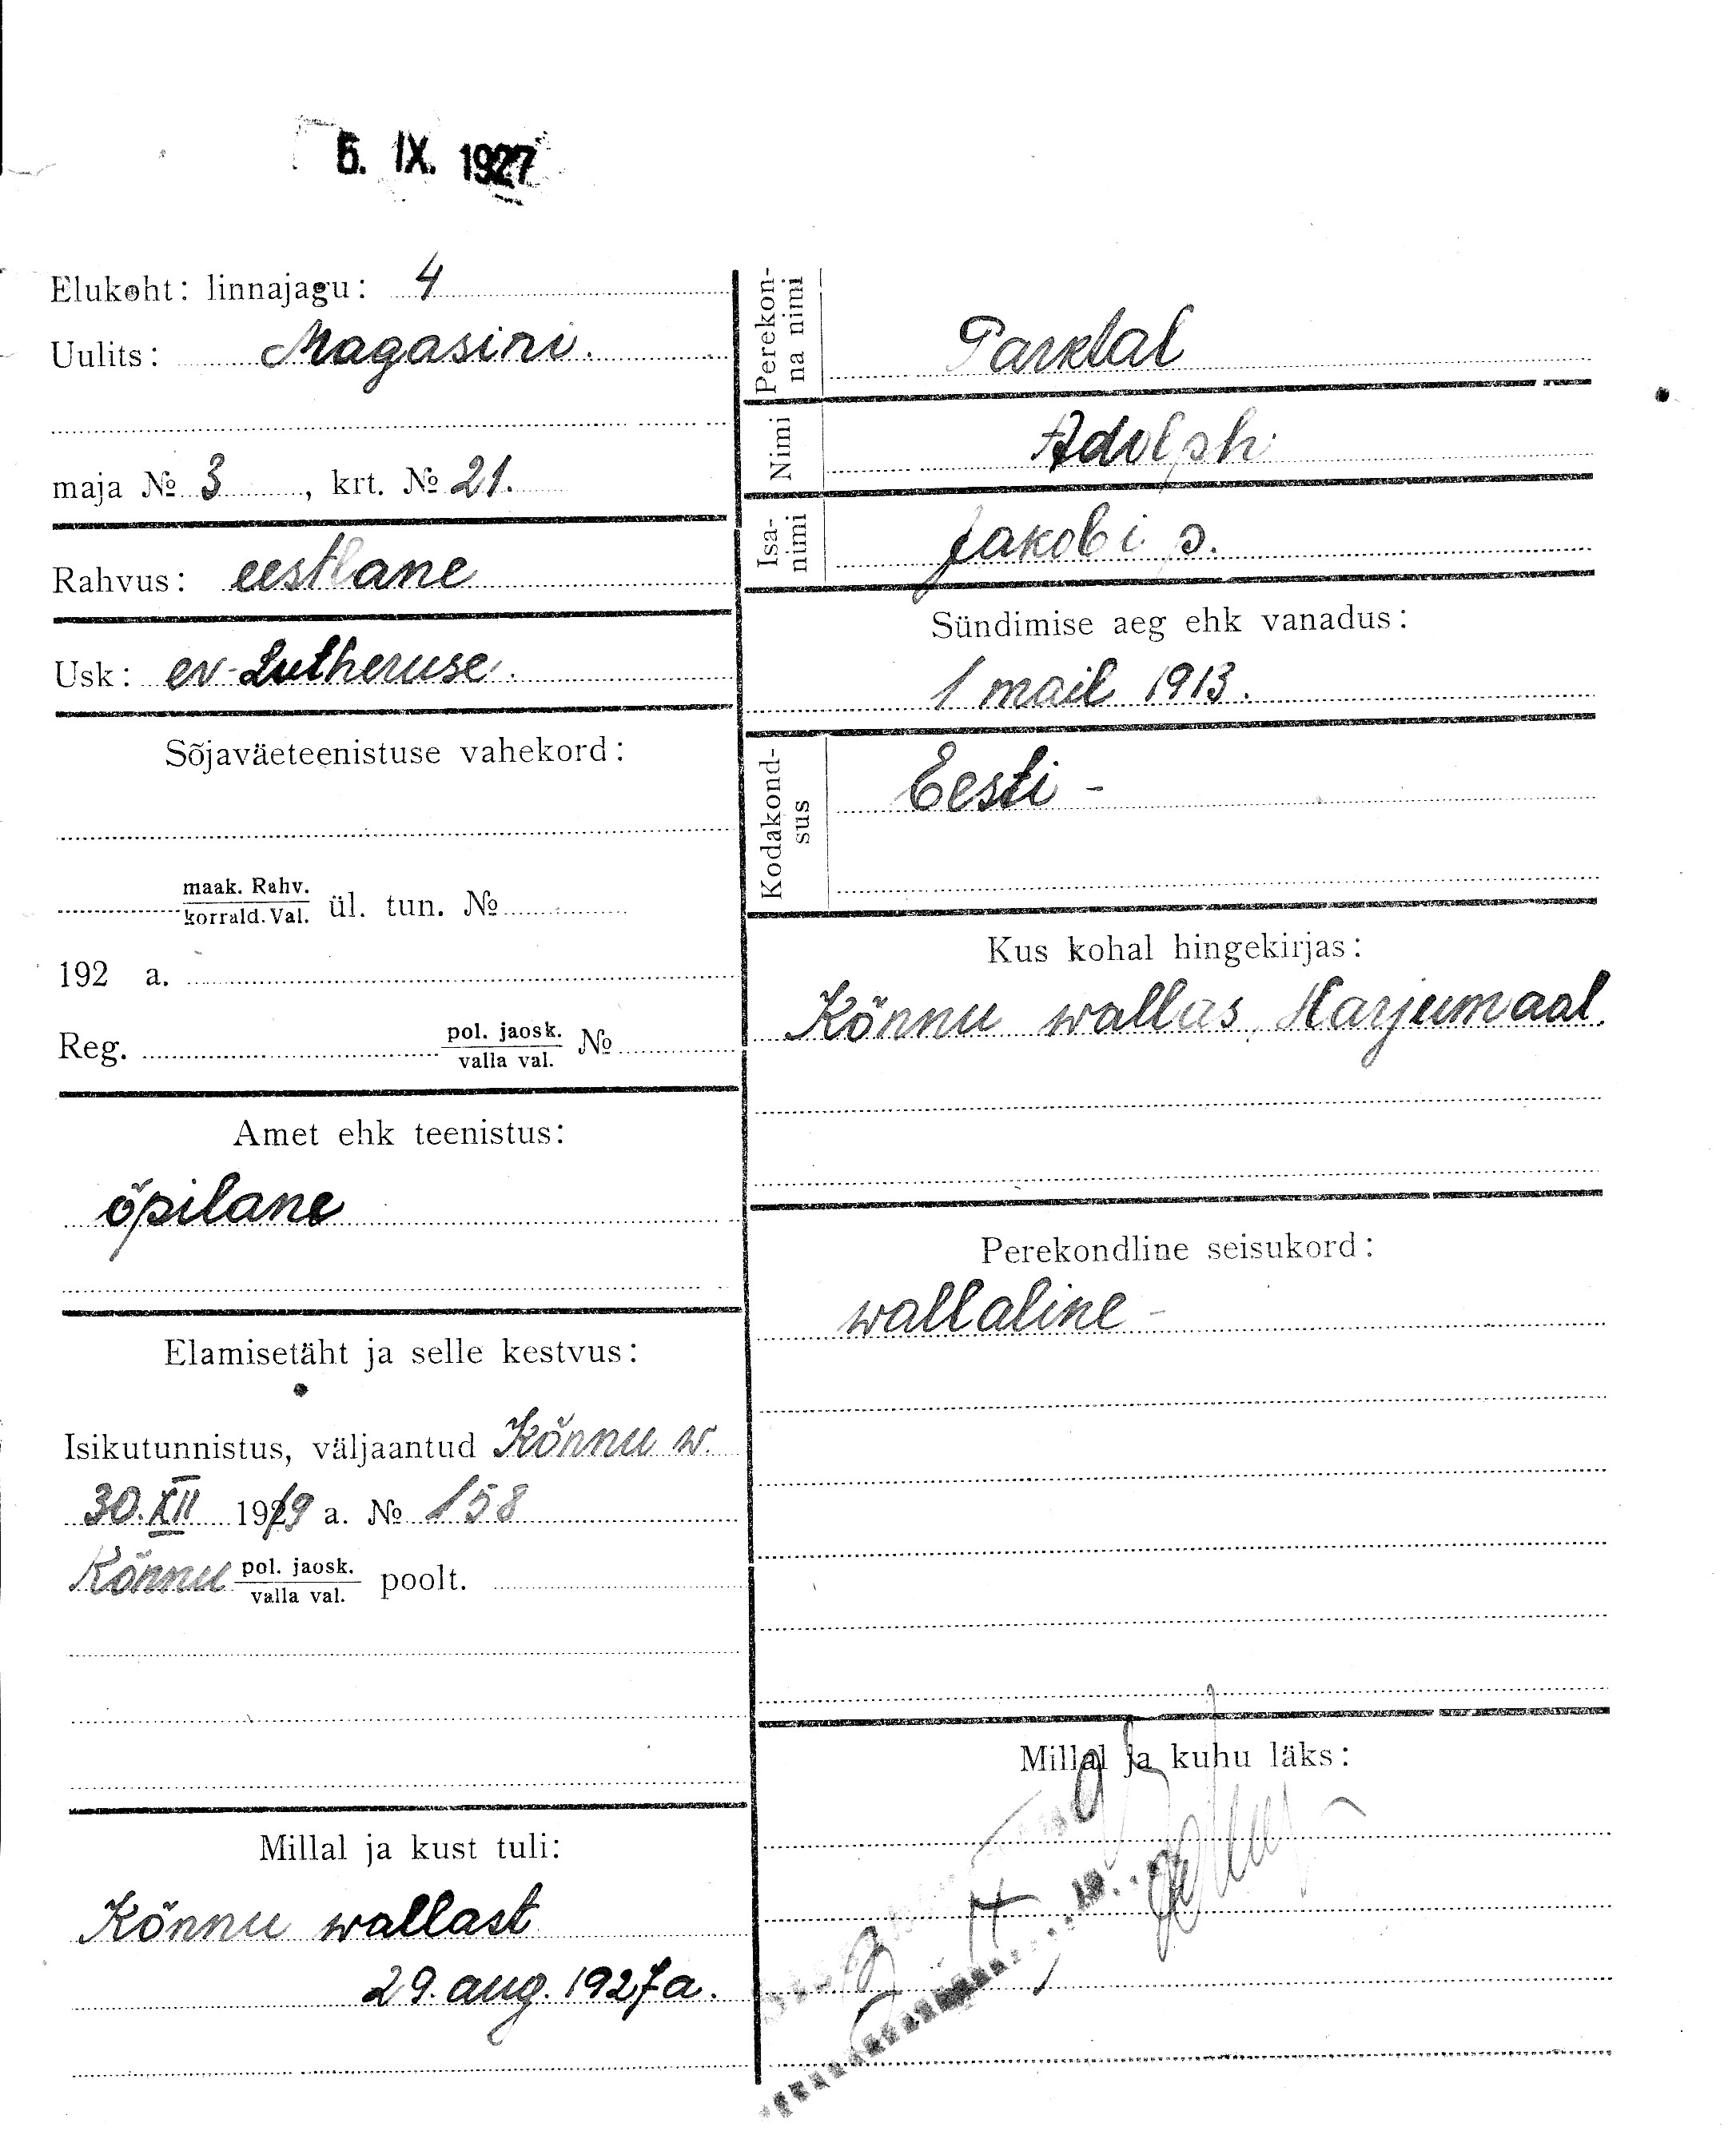 5. IX. 1927
Elukoht: linnajagu: 4
Uulits: Magasini.
maja № 3, krt. № 21.
Rahvus: eestlane
Usk: ev-Lutheruse.
Sõjaväeteenistuse vahekord:
maak. Rahv.
korrald. Val. ül. tun. №
192 a.
Reg. pol. jaosk. №
valla val.
Amet ehk teenistus:
õpilane
Elamisetäht ja selle kestvus:
Isikutunnistus, väljaantud Kõnnu w.
30. XII 1919 a. № 158
Kõnnu pol. jaosk. poolt.
valla val.
Millal ja kust tuli:
Kõnnu wallast
29. aug. 1927 a.
Perekon-
na nimi
Parktal
Nimi Adolph
Isa-
nimi
Jakobi p.
Sündimise aeg ehk vanadus:
1 mail 1913.
Kodakond-
sus
Eesti -
Kus kohal hingekirjas:
Kõnnu wallas, Harjumaal.
Perekondline seisukord:
wallaline -
Millal ja kuhu läks: